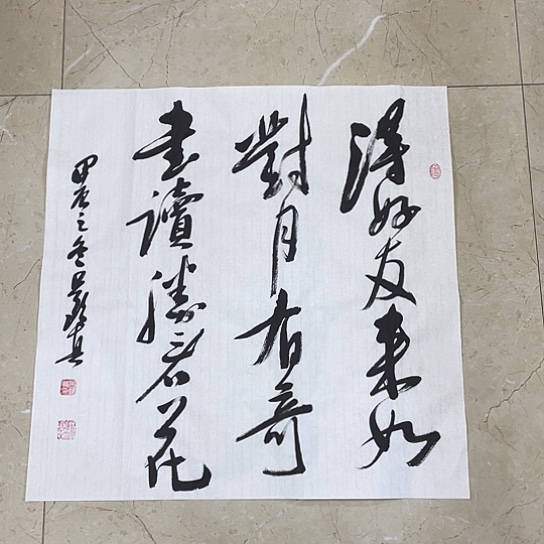 得好友来如
對月有奇
書讀勝看花
甲辰之冬